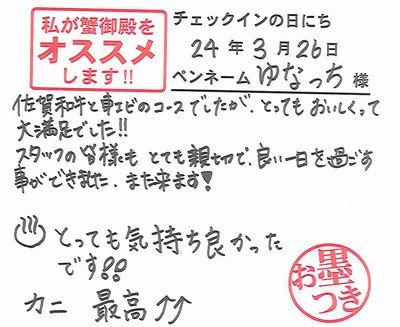 私が蟹御殿を
オススメ
します!!
チェックインの日にち
24年3月26日
ペンネーム ゆなっち 様
佐賀和牛と車エビのコースでしたが、とってもおいしくって
大満足でした!!
スタッフの皆様も とても親切で、良い一日を過ごす
事ができました。また来ます!
♨ とっても気持ち良かった
です!!
カニ 最高↑↑
お墨つき